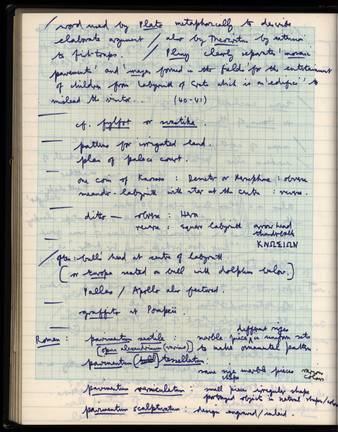 / word used by Plato metaphorically to describe
elaborate argument / also by Theocritus by extension
to fish-traps. / Pliny clearly separates 'mosaic
pavements' and 'mazes formed in the field' for the entertainment
of children from labyrinth of Crete which is an 'edifice' to
mislead the visitor.. (40-41)
cf. fylfot or swastika.
pattern for irrigated land.
plan of palace court.
one coin of Knossos : Demeter or Persephone : obverse
meander-labyrinth with star at the centre : reverse.
ditto — obverse : Hera
reverse : square labyrinth arrow head
thunderbolt
ΚΝΩΣΙΩΝ
/ often : bull's head at centre of labyrinth
(or Europa seated on bull with dolphins below)
Pallas / Apollo also featured.
graffito at Pompeii.
different sizes
Roman : pavimentum sectile : marble pieces in uniform sets
(opus alexandrinum) to make ornamental pattern
pavimentum tessellatum
same size marble pieces
shape colors
pavimentum vermiculatum : small pieces irregular shape
portrayed object in natural shape/color
pavimentum scalpturatum : design engraved/inlaid.